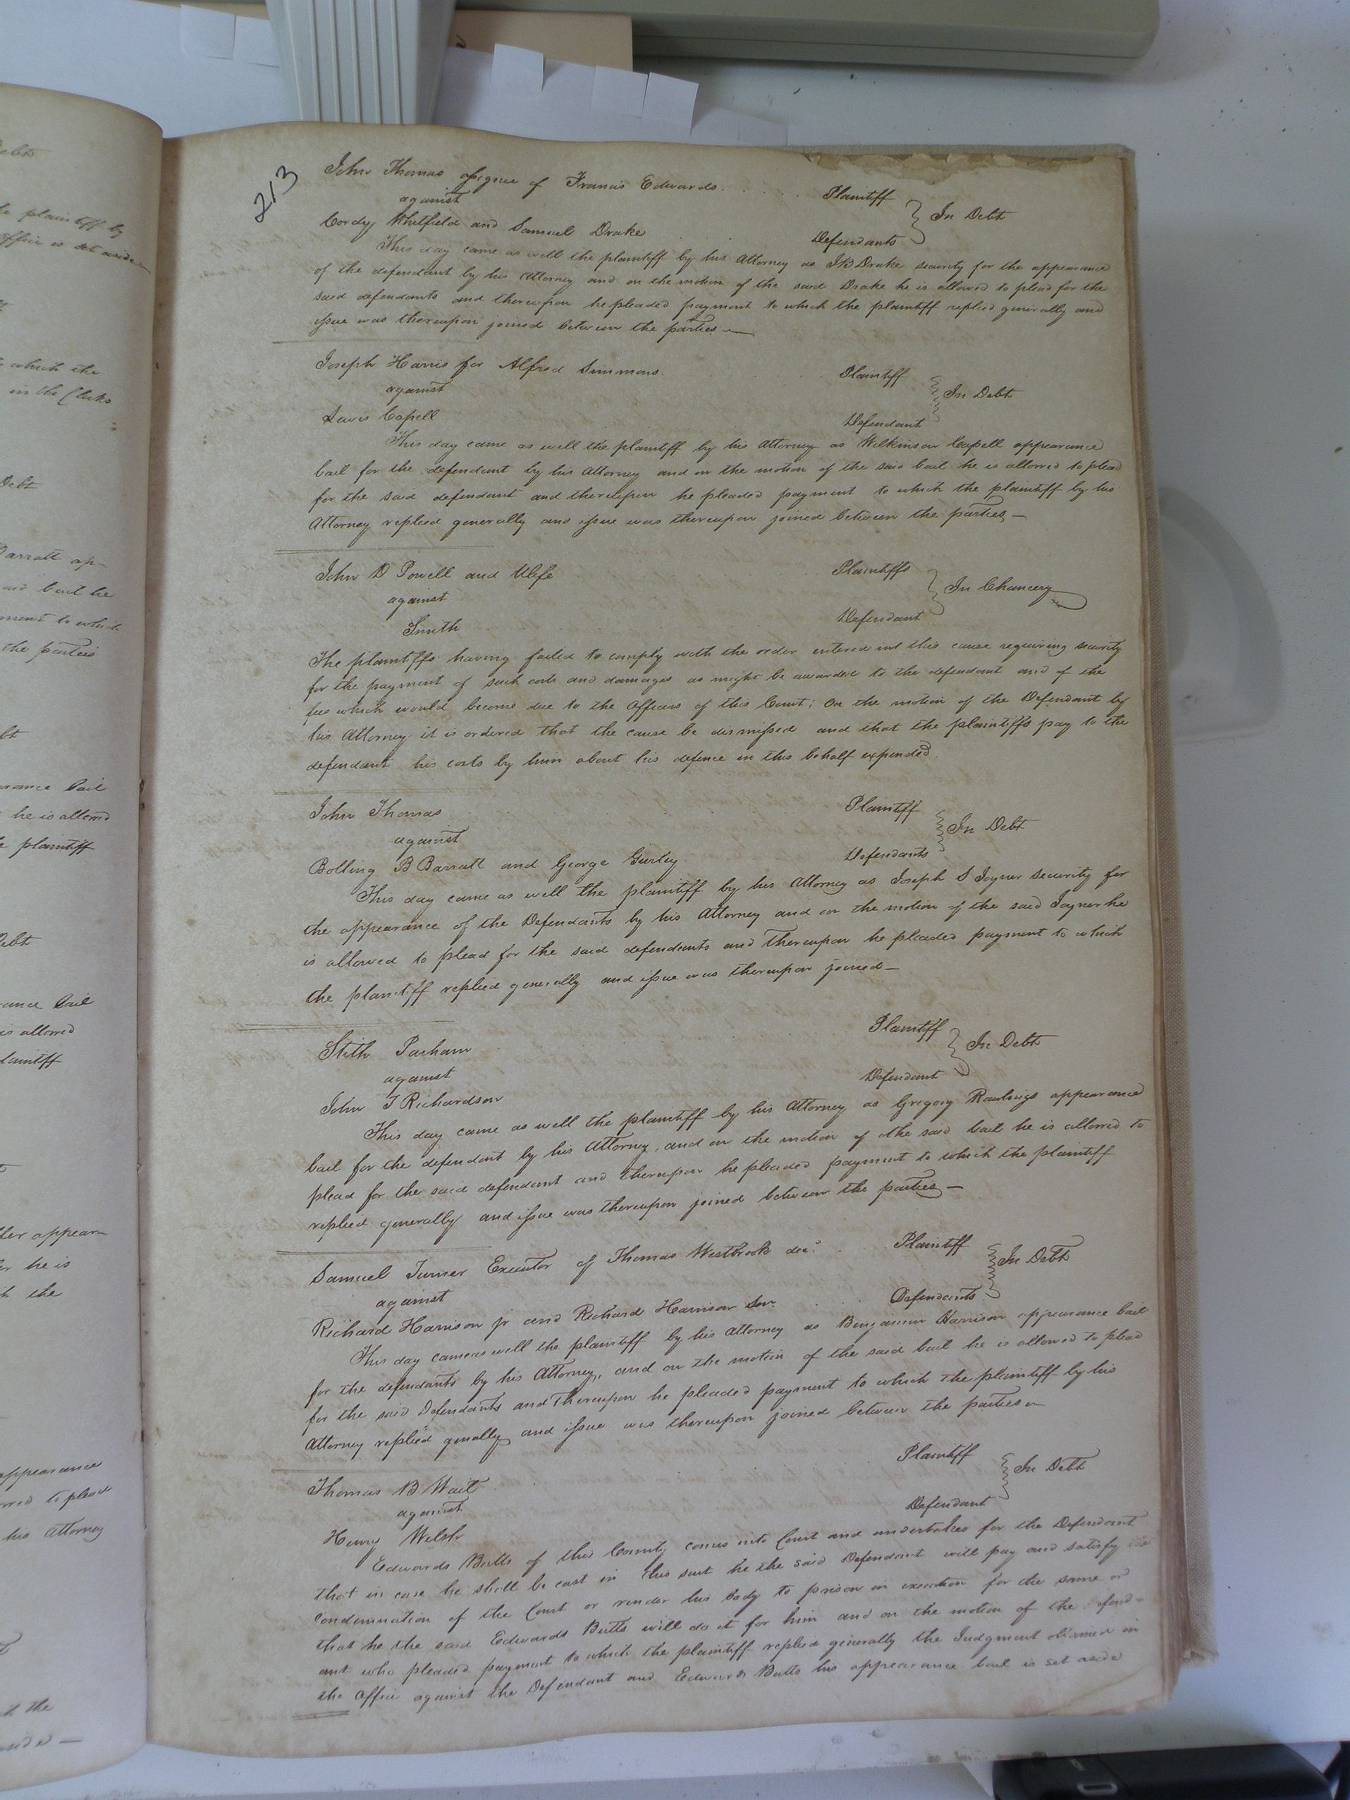 213
John Thomas assignee of Francis Edwards Plaintiff
against In Debt
Cordy Whitfield and Samuel Drake Defendants
This day came as well the plaintiff by his Attorney as J B Drake security for the appearance
of the defendant by his Attorney and on the motion of the said Drake he is allowed to plead for the
said defendants and thereupon he pleaded payment to which the plaintiff replied generally and
issue was thereupon joined between the parties —
Joseph Harris for Alfred Simmons Plaintiff
against In Debt
Lewis Capell Defendant
This day came as well the plaintiff by his Attorney as Wilkinson Capell appearance
bail for the defendant by his Attorney and on the motion of the said bail he is allowed to plead
for the said defendant and thereupon he pleaded payment to which the plaintiff by his
Attorney replied generally and issue was thereupon joined between the parties —
John D Powell and Wife Plaintiffs
against In Chancery
Smith Defendant
The plaintiffs having failed to comply with the order entered in this cause requiring security
for the payment of such costs and damages as might be awarded to the defendant and of the
fees which would become due to the Officers of this Court; On the motion of the Defendant by
his Attorney it is ordered that the cause be dismissed and that the plaintiffs pay to the
defendant his costs by him about his defence in this behalf expended
John Thomas Plaintiff
against In Debt
Bolling B Barratt and George Gurley Defendants
This day came as well the plaintiff by his Attorney as Joseph S Joyner security for
the appearance of the Defendants by his Attorney and on the motion of the said Joyner he
is allowed to plead for the said defendants and thereupon he pleaded payment to which
the plaintiff replied generally and issue was thereupon joined —
Stith Parham Plaintiff
against In Debt
John T Richardson Defendant
This day came as well the plaintiff by his Attorney as Gregory Rawlings appearance
bail for the defendant by his Attorney, and on the motion of the said bail he is allowed to
plead for the said defendant and thereupon he pleaded payment to which the plaintiff
replied generally and issue was thereupon joined between the parties —
Samuel Turner Executor of Thomas Westbrook dec'd Plaintiff
against In Debt
Richard Harrison jr and Richard Harrison Sen. Defendants
This day came as well the plaintiff by his Attorney as Benjamin Harrison appearance bail
for the defendants by his Attorney, and on the motion of the said bail he is allowed to plead
for the said Defendants and thereupon he pleaded payment to which the plaintiff by his
Attorney replied genally and issue was thereupon joined between the parties —
Thomas B Wait Plaintiff
against In Debt
Henry Welsh Defendant
Edwards Butts of this County comes into Court and undertakes for the Defendant
that in case he shall be cast in this suit he the said Defendant will pay and satisfy the
condemnation of the Court or render his body to prison in execution for the same or
that he the said Edwards Butts will do it for him and on the motion of the defend-
ant who pleaded payment to which the plaintiff replied generally the Judgment obtained in
the office against the Defendant and Edwards Butts his appearance bail is set aside